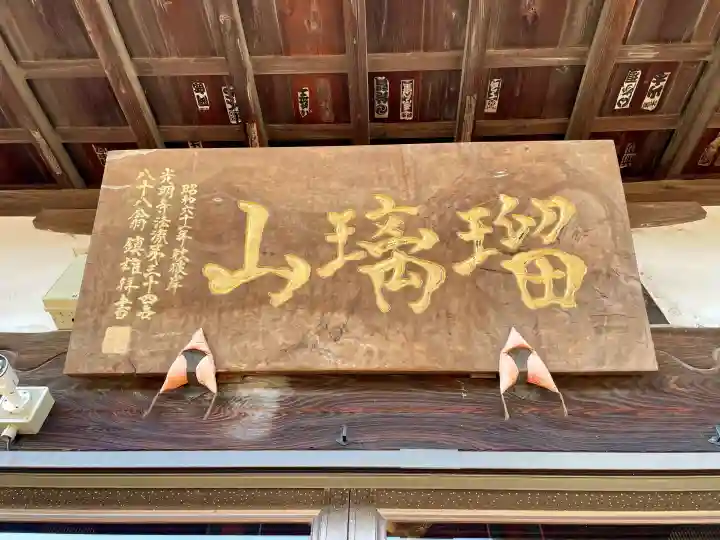 瑠璃山
昭和六十三年秋彼岸
光明寺法流第三十四世
八十八翁 鎮雄拝書